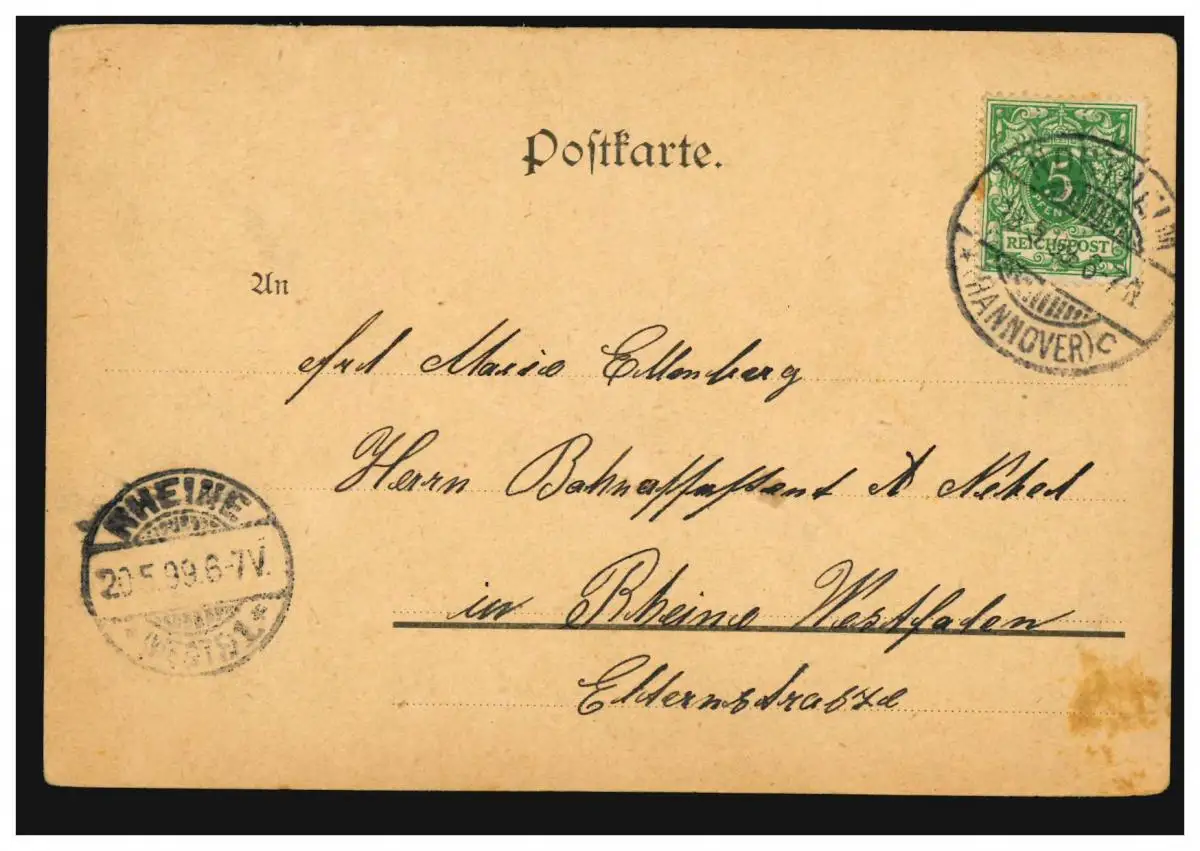 Postkarte.
5
PFENNIG
REICHSPOST
(HANNOVER) C
An
Frl Marie Ellenberg
Herrn Bahnassistent A
in Rheine Westfalen
Elternstrasze
RHEINE
20.5.99.6-7V.
* (WESTF.) *